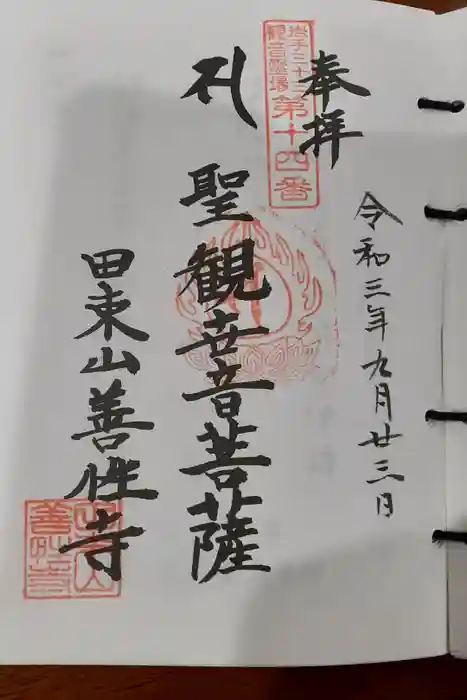 奉拝
令和三年九月廿三日
岩手三十三
観音霊場
第十四番
聖観世音菩薩
田束山善性寺